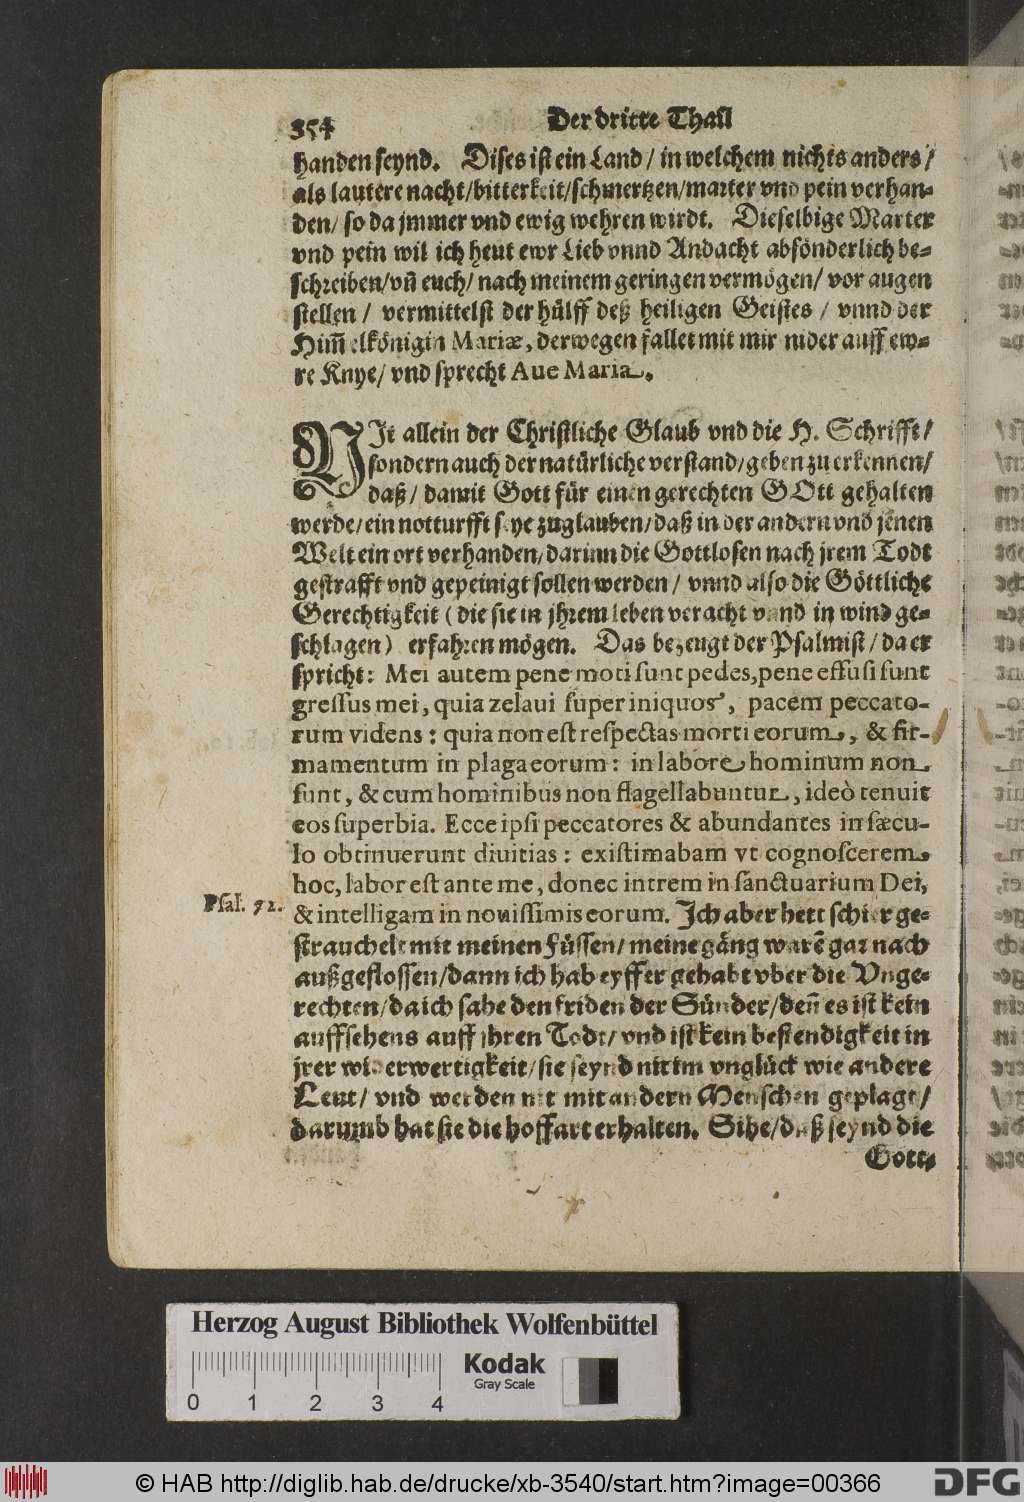 354 Der dritte Thail
handen seynd. Dises ist ein Land / in welchem nichts anders /
als lautere nacht / bitterkeit / schmertzen / marter vnd pein verhan-
den / so da jmmer vnd ewig wehren wirdt. Dieselbige Marter
vnd pein wil ich heut ewr Lieb vnnd Andacht absönderlich be-
schreiben / vñ euch / nach meinem geringen vermögen / vor augen
stellen / vermittelst der hülff deß heiligen Geistes / vnnd der
Him̃elkönigin Mariæ, derwegen fallet mit mir nider auff ew-
re Knye / vnd sprecht Aue Maria.
NIt allein der Christliche Glaub vnd die H. Schrifft /
sondern auch der natürliche verstand / geben zu erkennen /
daß / damit Gott für einen gerechten GOtt gehalten
werde / ein notturfft seye zuglauben / daß in der andern vnd jenen
Welt ein ort verhanden / darinn die Gottlosen nach jrem Todt
gestrafft vnd gepeinigt sollen werden / vnnd also die Göttliche
Gerechtigkeit (die sie in jhrem leben veracht vnnd in wind ge-
schlagen) erfahren mögen. Das bezeugt der Psalmist / da er
spricht: Mei autem pene moti sunt pedes, pene effusi sunt
gressus mei, quia zelaui super iniquos, pacem peccato-
rum videns: quia non est respectas morti eorum, & fir-
mamentum in plaga eorum: in labore hominum non
sunt, & cum hominibus non flagellabuntur, ideò tenuit
eos superbia. Ecce ipsi peccatores & abundantes in sæcu-
lo obtinuerunt diuitias: existimabam vt cognoscerem
hoc, labor est ante me, donec intrem in sanctuarium Dei,
Psal. 72. & intelligam in nouissimis eorum. Ich aber hett schier ge-
strauchelt mit meinen Füssen / meine gäng warẽ gar nach
außgeflossen / dann ich hab eyffer gehabt vber die Vnge-
rechten / da ich sahe den friden der Sünder / deñ es ist kein
auffsehens auff jhren Todt / vnd ist kein bestendigkeit in
jrer widerwertigkeit / sie seynd nit im vnglück wie andere
Leut / vnd werden nit mit andern Menschen geplagt /
darumb hat sie die hoffart erhalten. Sihe / daß seynd die
Gott-
Herzog August Bibliothek Wolfenbüttel
Kodak
Gray Scale
0 1 2 3 4
© HAB http://diglib.hab.de/drucke/xb-3540/start.htm?image=00366
DFG